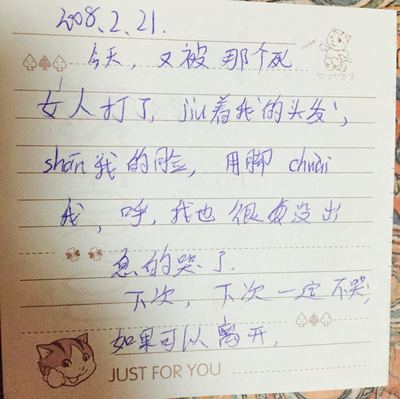 2008.2.21.
今天，又被那个死
女人打了，jiu着我的头发，
shān我的脸，用脚chuài
我，呼，我也很有没出
息的哭了.
下次，下次一定不哭，
如果可以离开.
JUST FOR YOU